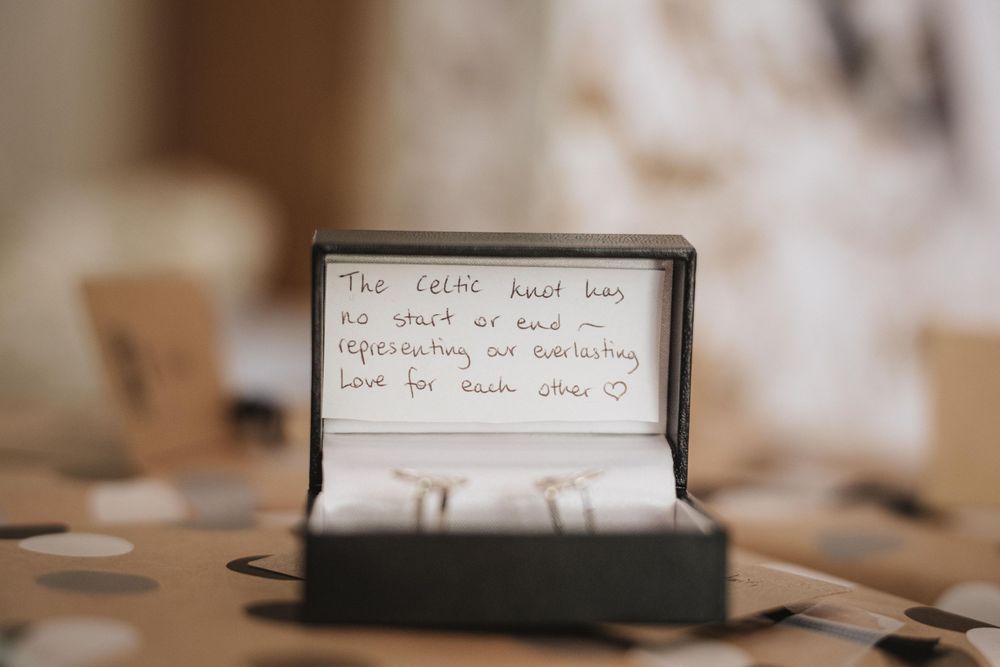 The Celtic knot has
no start or end ~
representing our everlasting
Love for each other ♡